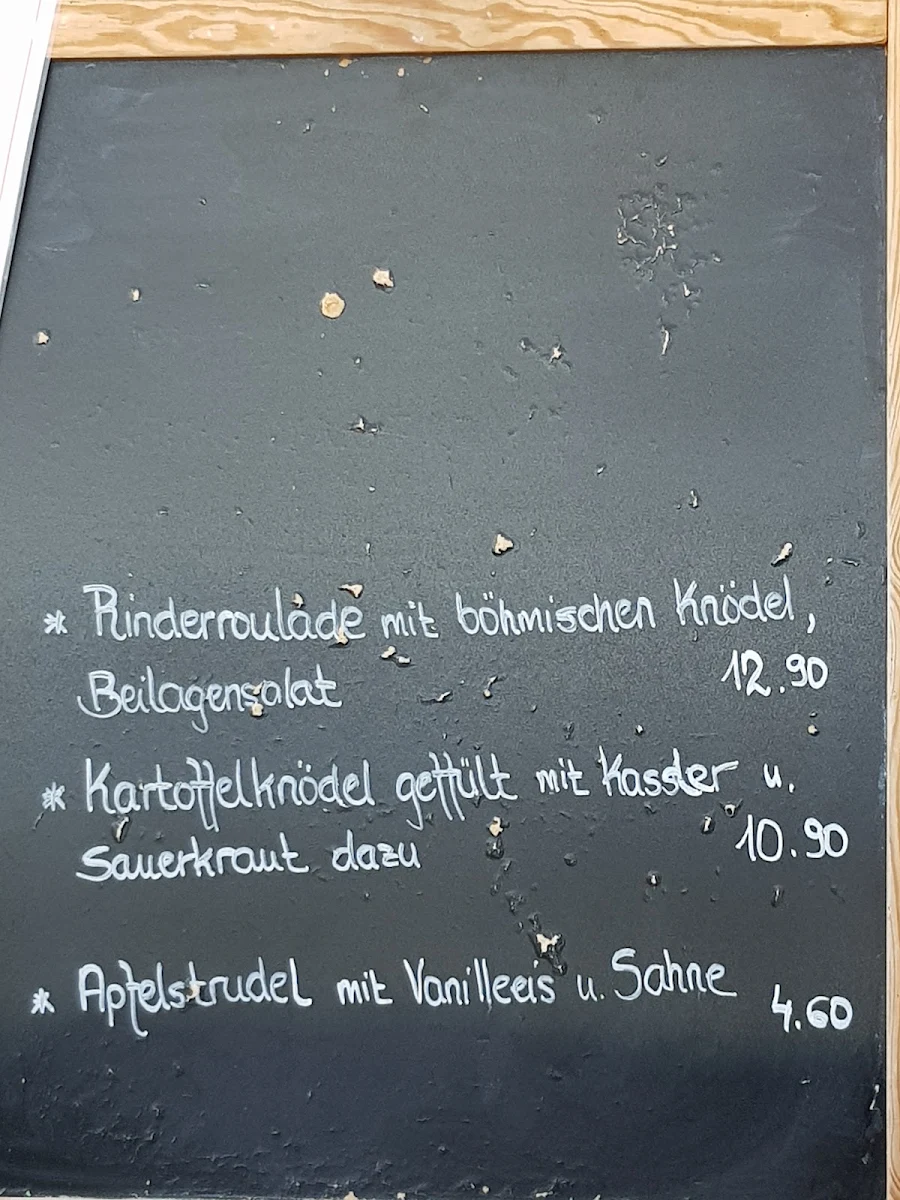 * Rinderroulade mit böhmischen Knödel,
Beilagensalat 12.90
* Kartoffelknödel geffült mit Kassler u.
Sauerkraut dazu 10.90
* Apfelstrudel mit Vanilleeis u. Sahne
4.60